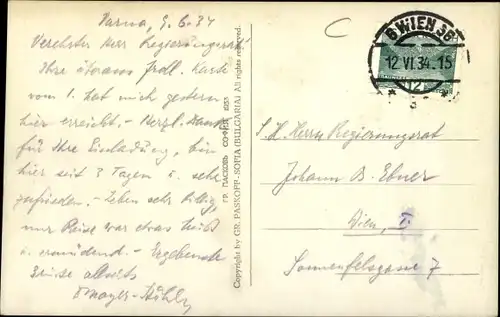 Varna, 9.6.34
Verehrter Herr Regierungsrat
Ihre überaus frdl. Karte
vom 1. hat mich gestern
hier erreicht. - Herzl. Dank
für Ihre Einladung, bin
hier seit 3 Tagen u. sehr
zufrieden. - Leben sehr billig
nur Reise war etwas heiß
u. ermüdend. - Ergebenste
Grüße allseits
Mayer-
ГР. ПАСКОВЪ СОФИЯ 1933
Copyright by GR. PASKOFF-SOFIA (BULGARIA) All rights reserved.
6 WIEN 56
12.VI.34.15
S. H. Herrn Regierungsrat
Johann B. Ebner
Wien, I.
Sonnenfelsgasse 7